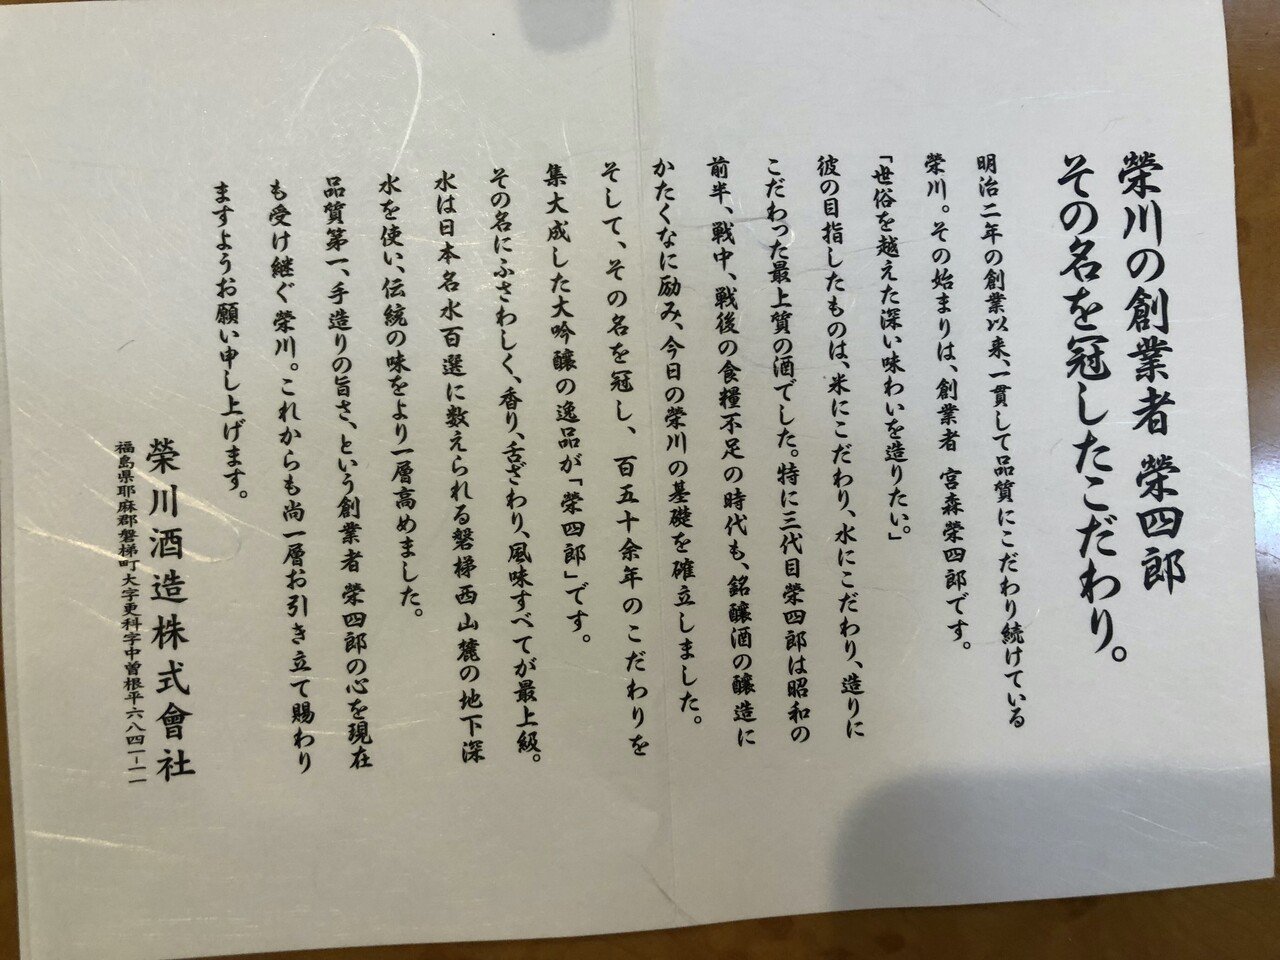 榮川の創業者 榮四郎
その名を冠したこだわり。
明治二年の創業以来、一貫して品質にこだわり続けている
榮川。その始まりは、創業者 宮森榮四郎です。
「世俗を越えた深い味わいを造りたい。」
彼の目指したものは、米にこだわり、水にこだわり、造りに
こだわった最上質の酒でした。特に三代目榮四郎は昭和の
前半、戦中、戦後の食糧不足の時代も、銘醸酒の醸造に
かたくなに励み、今日の榮川の基礎を確立しました。
そして、その名を冠し、百五十余年のこだわりを
集大成した大吟醸の逸品が「榮四郎」です。
その名にふさわしく、香り、舌ざわり、風味すべてが最上級。
水は日本名水百選に数えられる磐梯西山麓の地下深
水を使い、伝統の味をより一層高めました。
品質第一、手造りの旨さ、という創業者 榮四郎の心を現在
も受け継ぐ榮川。これからも尚一層お引き立て賜わり
ますようお願い申し上げます。
榮川酒造株式會社
福島県耶麻郡磐梯町大字更科字中曽根平六八四一-一一